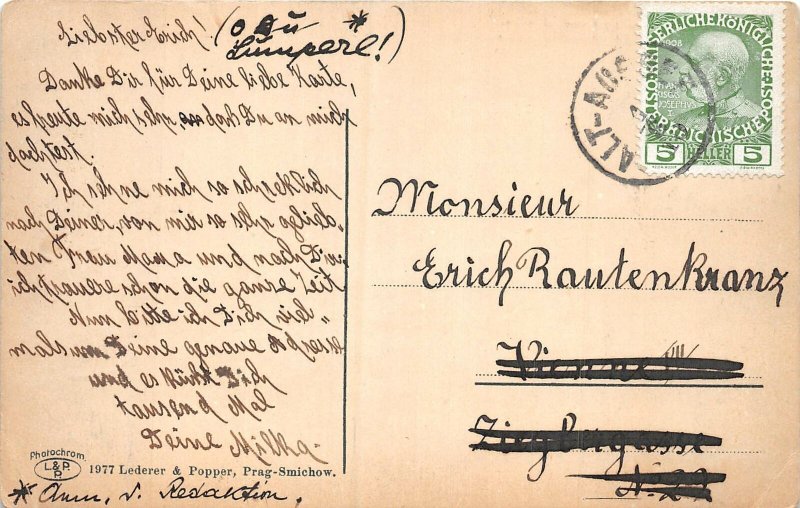 Liebster Erich! (o Du *
Lumperl!)
Danke Dir für Deine liebe Karte,
es freute mich sehr, daß Du an mich
dachtest.
Ich sehne mich so schrecklich
nach Deiner, von mir so sehr gelieb-
ten Frau Mama und nach Dir
ich die ganze Zeit
Nun bitte ich Dich viel-
mals um Deine genaue Adresse
und es küßt Dich
tausend Mal
Deine Milka-
Photochrom.
L&P.
P.
1977 Lederer & Popper, Prag-Smichow.
* Anm. d. Redaktion.
ALT-AUSSEE
1908
KAISERLICHE KÖNIGLICHE
ÖSTERREICHISCHE POST
FRANCISCUS JOSEPHUS I
5 HELLER 5
Monsieur
Erich Rautenkranz
Vienne VII/
Zieglergasse
No 22